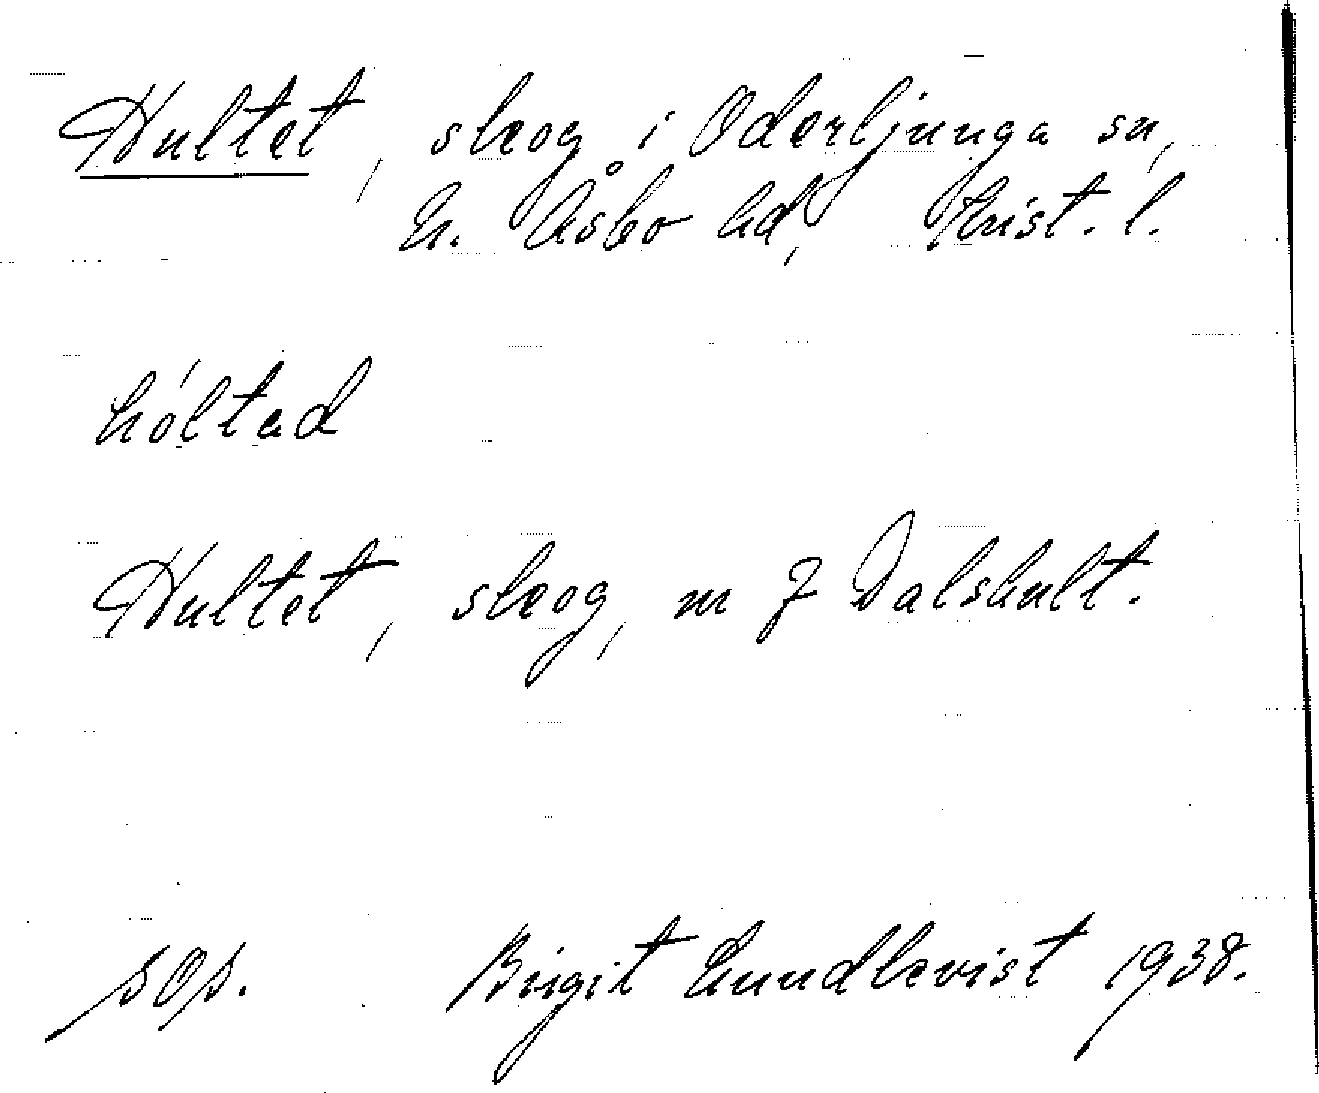 Hultet, skog i Oderljunga sn,
N. Åsbo hd, Krist. l.
hóltad
Hultet, skog, m J Dalshult.
sOs. Birgit Lundkvist 1938.